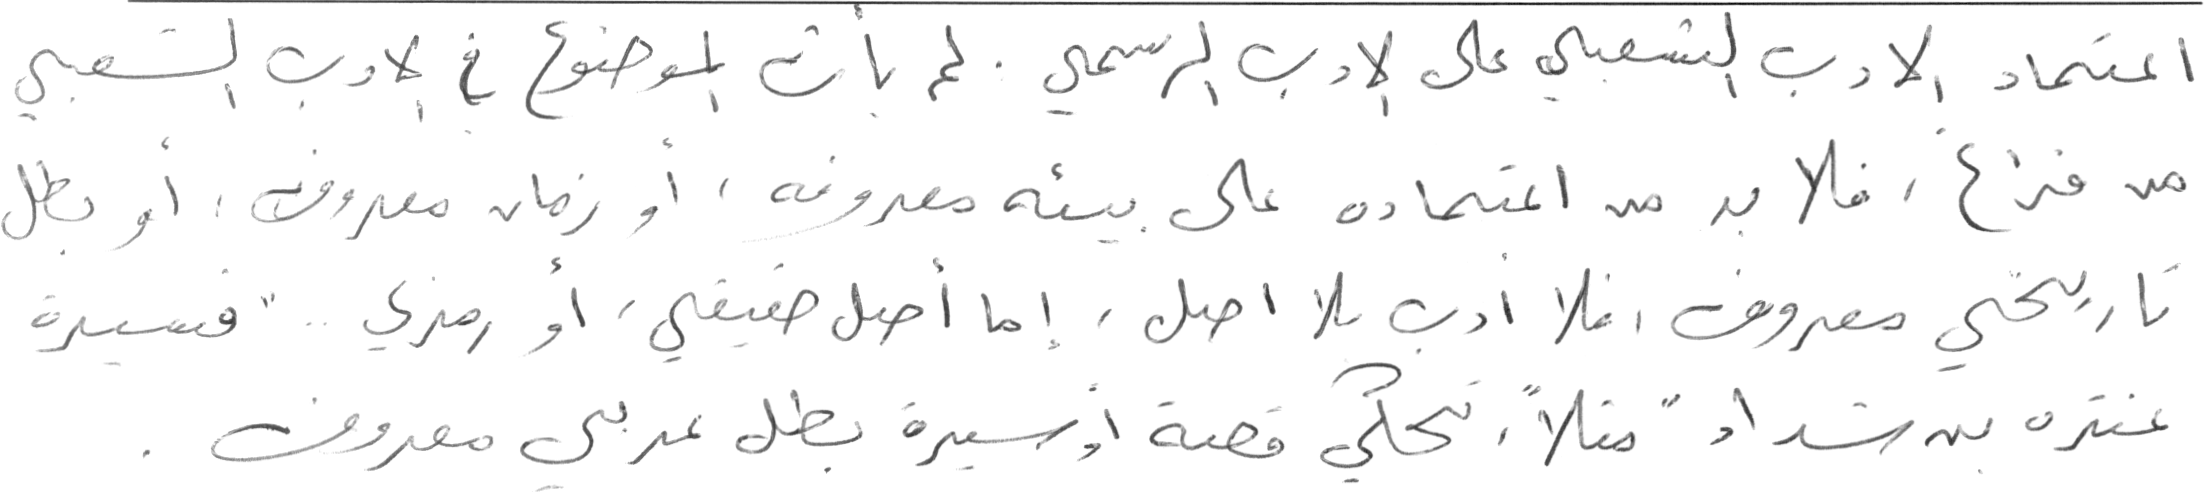 اعتماد الادب الشعبي على الادب الرسمي . لم يأت الموضوع في الادب الشعبي
من فراغ ، فلا بد من اعتماده على بيئه معروفه ، أو زمان معروف ، أو بطل
تاريخي معروف ، فلا أدب بلا اصل ، إما أصل حقيقي ، أو رمزي .. "فسيرة
عنتره بن شداد" مثلاً ، تحكي قصة أو سيرة بطل عربي معروف .